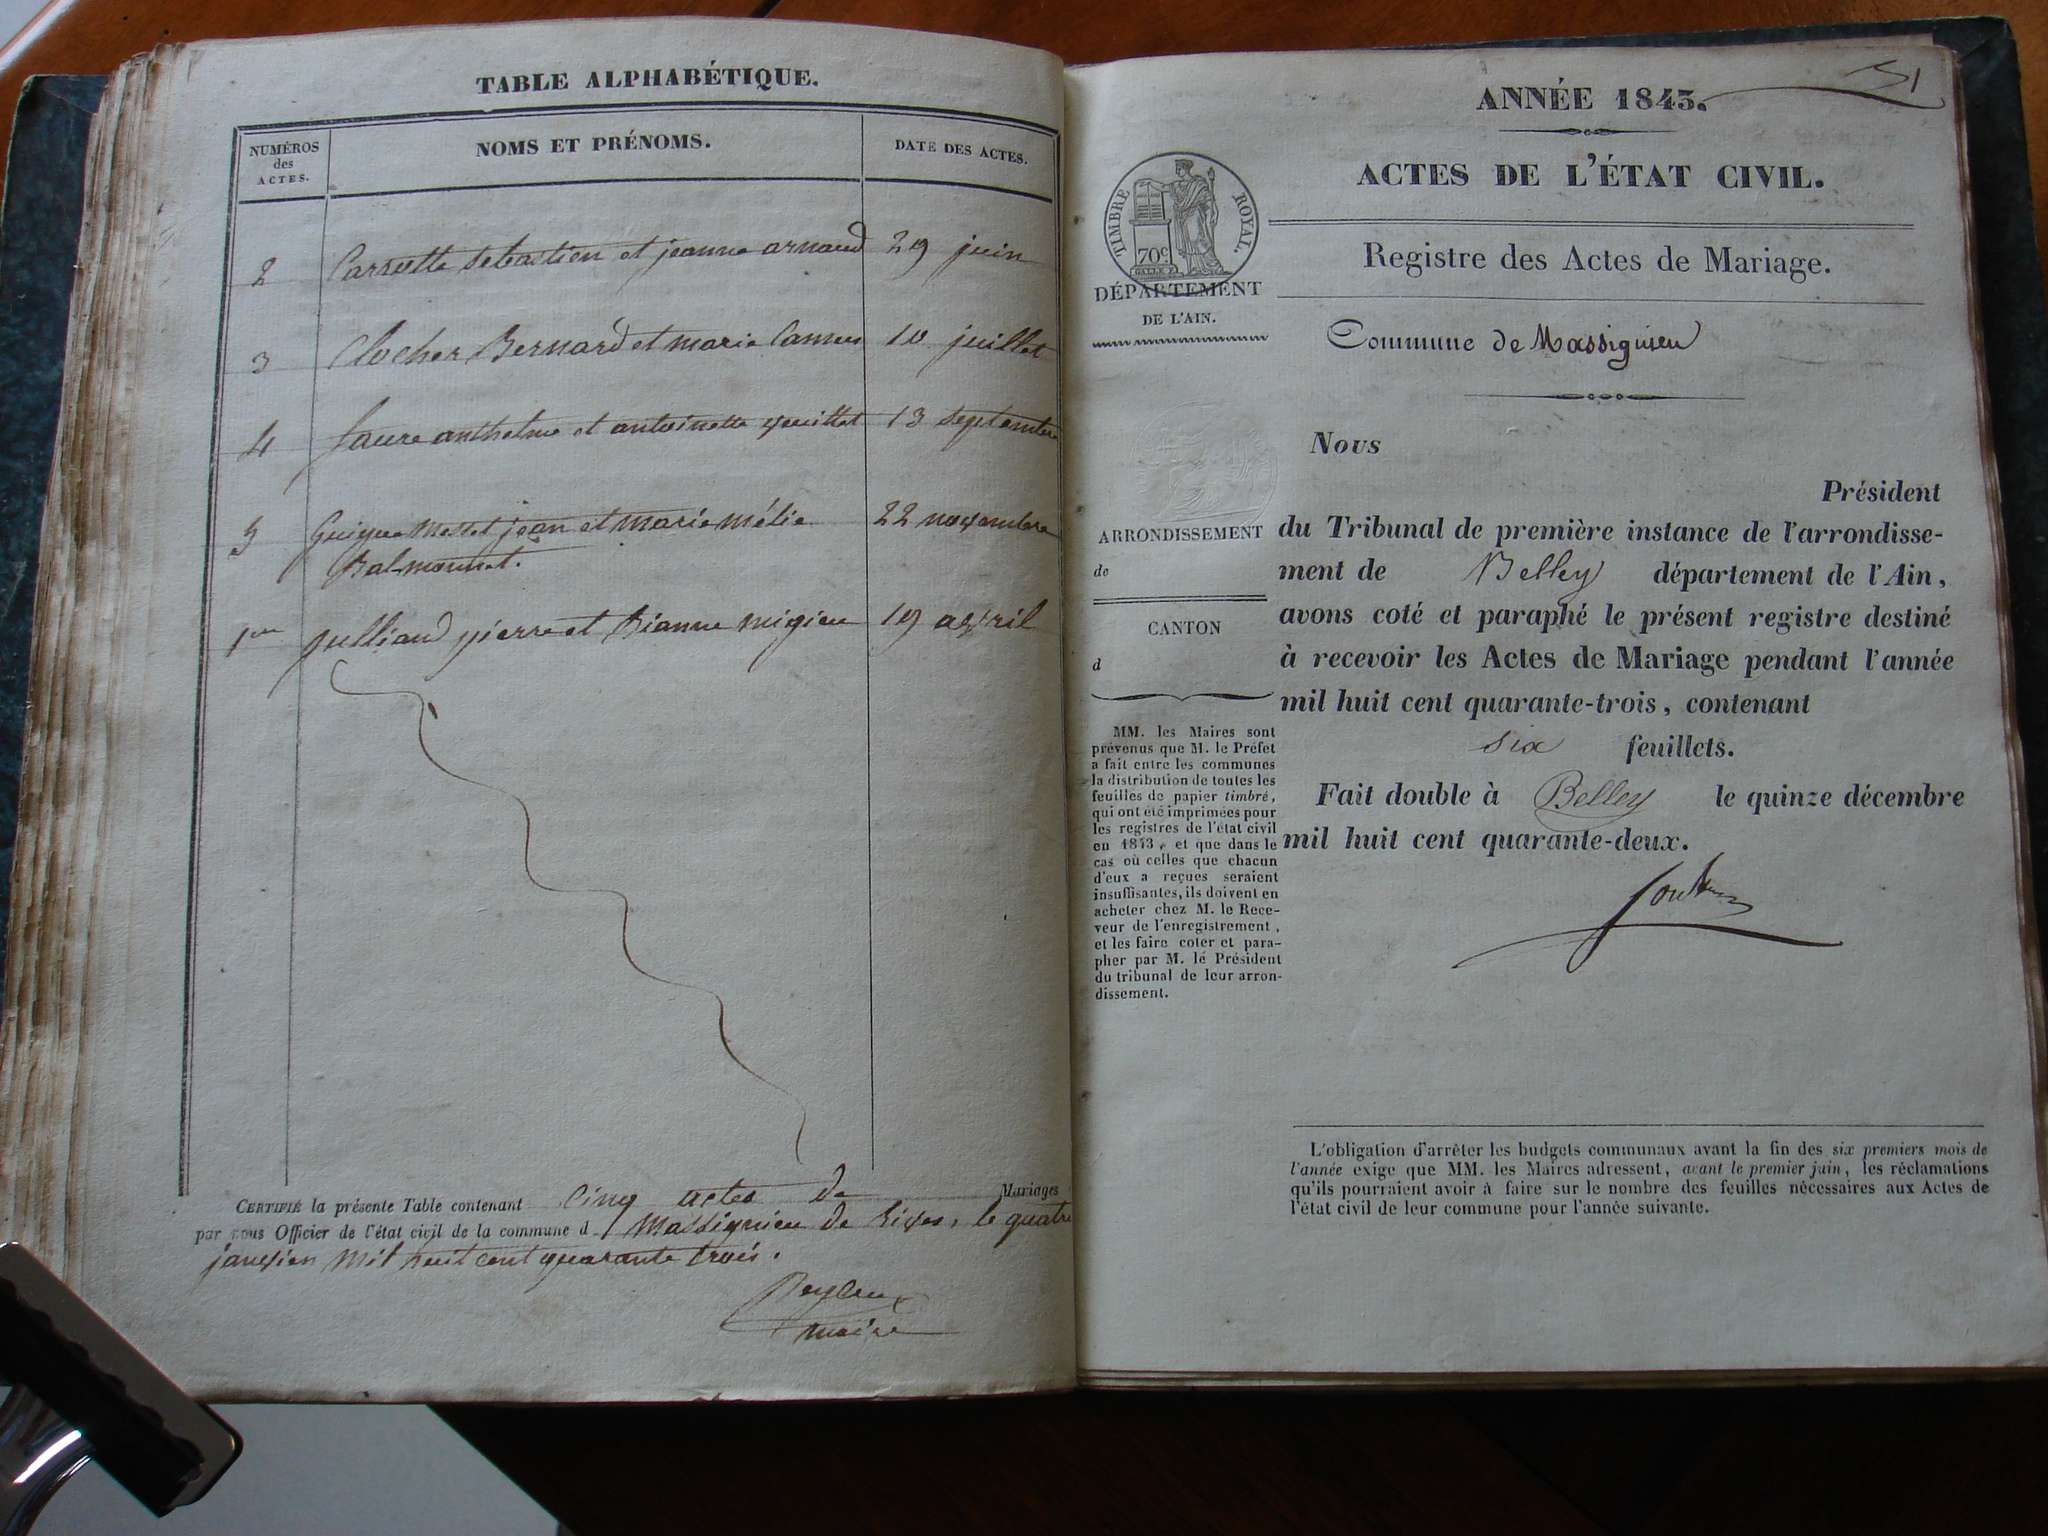 TABLE ALPHABÉTIQUE.
NUMÉROS
des
ACTES.
NOMS ET PRÉNOMS.
DATE DES ACTES.
2 Carrotte sebastien et jeanne arnaud 29 juin
3 Clocher Bernard et marie Camus 10 juillet
4 faure anthelme et antoinette 13 septembre
5 Guigue Messet jean et marie mélie 22 novembre
Balmonnet.
1er julliand pierre et migieu 19 avril
CERTIFIÉ la présente Table contenant cinq actes de Mariages
par nous Officier de l'état civil de la commune d Massignieu de Rives, le quatre
janvier mil huit cent quarante trois.
maire
51
ANNÉE 1843.
ACTES DE L'ÉTAT CIVIL.
TIMBRE ROYAL.
70c
DÉPARTEMENT
DE L'AIN.
Registre des Actes de Mariage.
Commune de Massignieu
Nous
Président
ARRONDISSEMENT
de
CANTON
d
du Tribunal de première instance de l'arrondisse-
ment de Belley département de l'Ain,
avons coté et paraphé le présent registre destiné
à recevoir les Actes de Mariage pendant l'année
mil huit cent quarante-trois, contenant
six feuillets.
Fait double à Belley le quinze décembre
mil huit cent quarante-deux.
MM. les Maires sont
prévenus que M. le Préfet
a fait entre les communes
la distribution de toutes les
feuilles de papier timbré,
qui ont été imprimées pour
les registres de l'état civil
en 1843, et que dans le
cas où celles que chacun
d'eux a reçues seraient
insuffisantes, ils doivent en
acheter chez M. le Rece-
veur de l'enregistrement,
et les faire coter et para-
pher par M. le Président
du tribunal de leur arron-
dissement.
L'obligation d'arrêter les budgets communaux avant la fin des six premiers mois de
l'année exige que MM. les Maires adressent, avant le premier juin, les réclamations
qu'ils pourraient avoir à faire sur le nombre des feuilles nécessaires aux Actes de
l'état civil de leur commune pour l'année suivante.